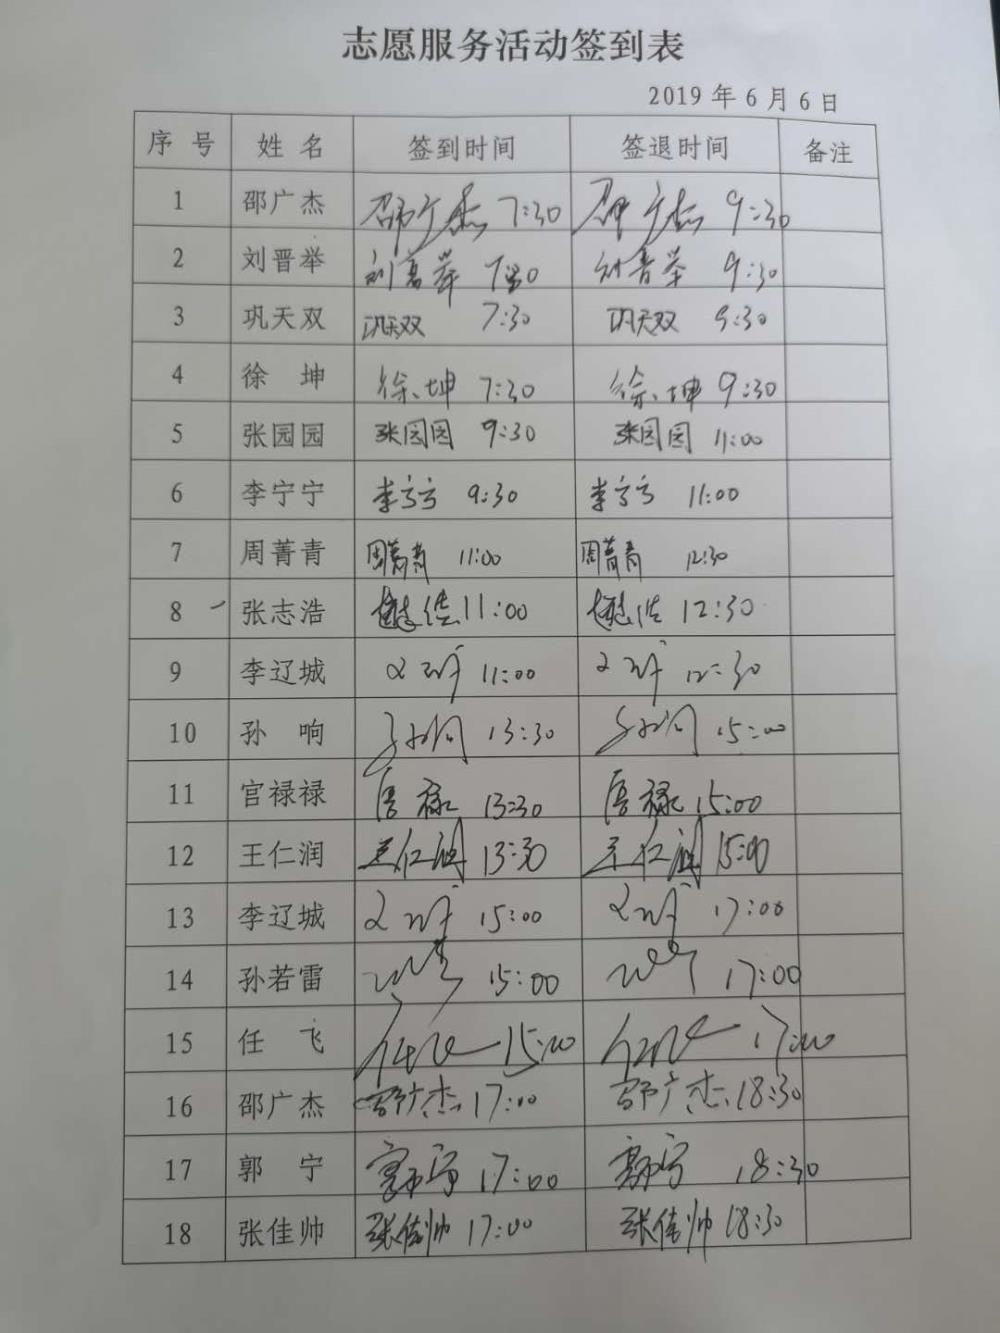 志愿服务活动签到表
2019年6月6日
序号 姓名 签到时间 签退时间 备注
1 邵广杰 邵广杰 7:30 邵广杰 9:30
2 刘晋举 刘晋举 7:30 刘晋举 9:30
3 巩天双 巩天双 7:30 巩天双 9:30
4 徐坤 徐坤 7:30 徐坤 9:30
5 张园园 张园园 9:30 张园园 11:00
6 李宁宁 李宁宁 9:30 李宁宁 11:00
7 周菁青 周菁青 11:00 周菁青 12:30
8 张志浩 11:00 12:30
9 李辽城 11:00 12:30
10 孙响 孙响 13:30 孙响 15:00
11 官禄禄 13:30 15:00
12 王仁润 王仁润 13:30 王仁润 15:00
13 李辽城 15:00 17:00
14 孙若雷 15:00 17:00
15 任飞 任飞 15:00 任飞 17:00
16 邵广杰 邵广杰 17:00 邵广杰 18:30
17 郭宁 郭宁 17:00 郭宁 18:30
18 张佳帅 张佳帅 17:00 张佳帅 18:30